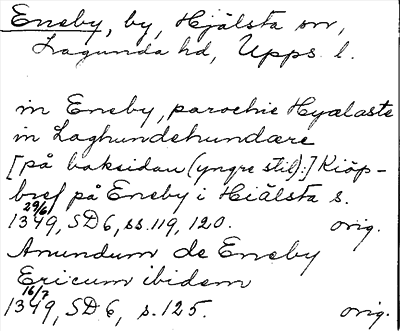 Eneby, by, Hjälsta sn,
Lagunda hd, Upps. l.
in Eneby, parochie Hyælaste
in Laghundehundære
[på baksidan (yngre stil):] Kiöp-
bref på Eneby i Hiälsta s.
29/6 1349, SD 6, ss. 119, 120. orig.
Anundum de Eneby
Ericum ibidem
16/7 1349, SD 6, s. 125. orig.